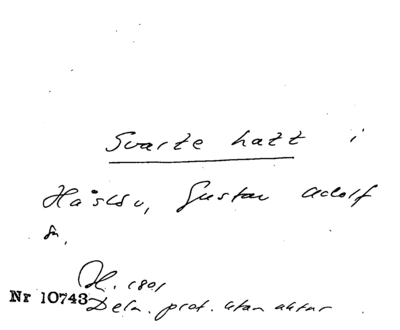 Svarte hatt i
Håslöv, Gustav Adolf
sn.
H. 1801
Nr 10743 Deln. prot. utan aktnr